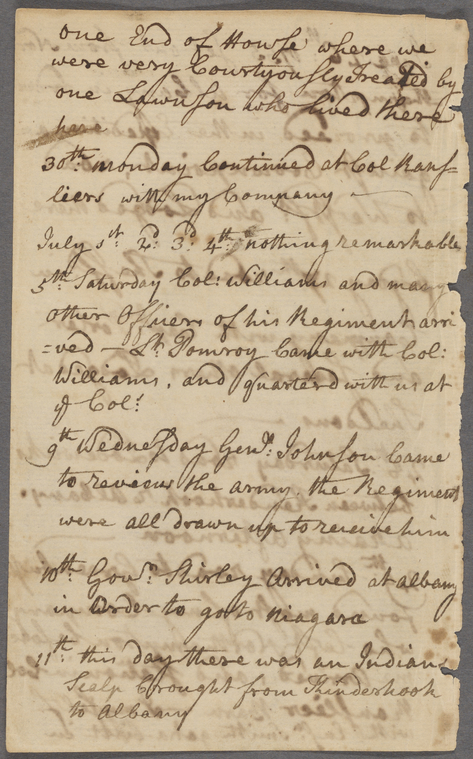 one End of House where we
were very Courtyously Treated by
one Lawnson who lived there
here
30th: monday Continued at Col Rans=
liers with my Company
July 1st: 2d: 3d: 4th: nothing remarkable
5th Saturday Col: Williams and many
other Officers of his Regiment arri
=ved — Lt. Pomroy Came with Col:
Williams, and quarterd with us at
ye Col:s
9th Wednesday Genll: Johnson Came
to review the army. the Regiment
were all drawn up to receive him
10th: Govr: Shirley Arrived at albany
in order to go to Niagara
11th: this day there was an Indians
Scalp brought from Kinderhook
to Albany